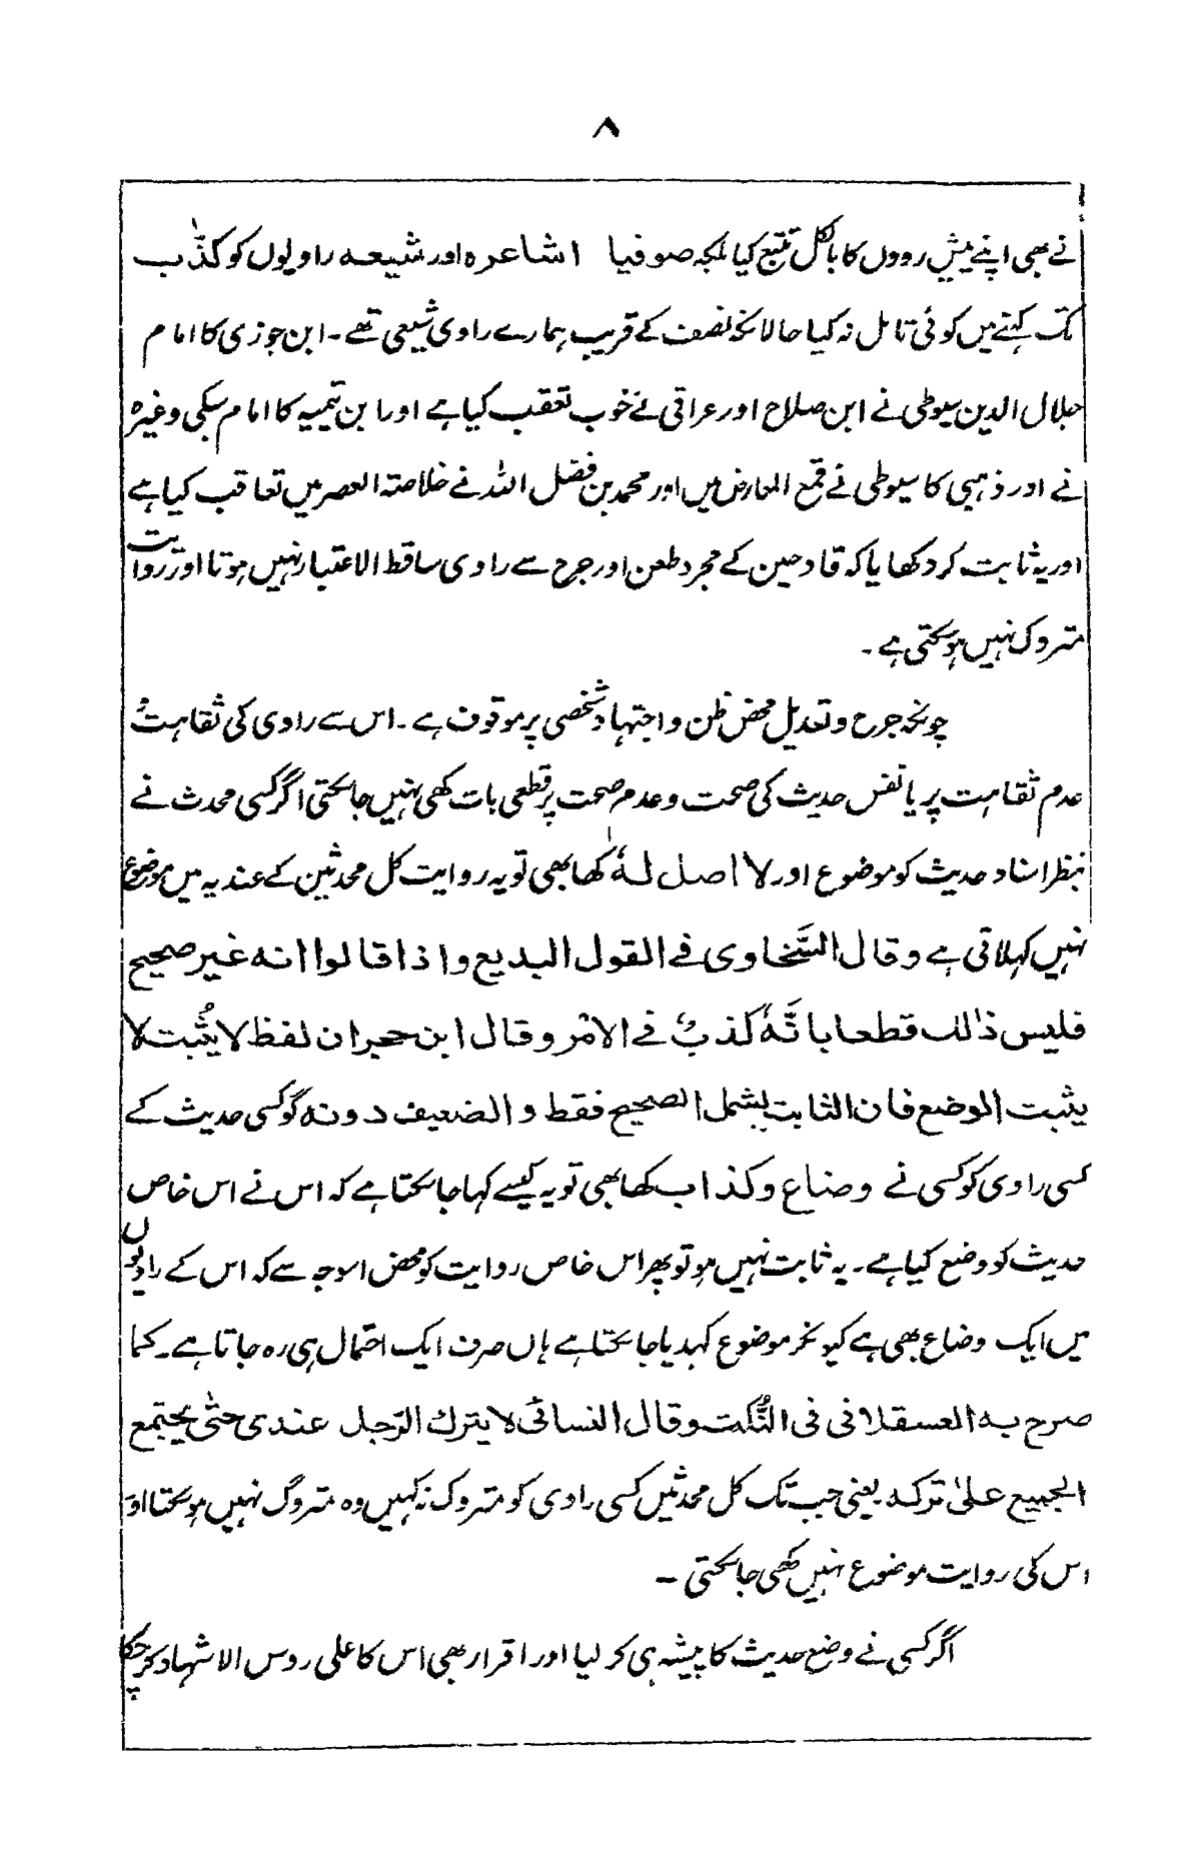 ۸
نے بھی اپنے پیش رووں کا بالکل تتبع کیا بلکہ صوفیا اشاعرہ اور شیعہ راویوں کو کذّاب
تک کہنے میں کوئی تامل نہ کیا حالانکہ نصف کے قریب ہمارے راوی شیعی تھے۔ ابن جوزی کا امام
جلال الدین سیوطی نے ابن صلاح اور عراقی نے خوب تعقب کیا ہے اور ابن تیمیہ کا امام سبکی وغیرہ
نے اور ذہبی کا سیوطی نے قمع المعارض میں اور محمد بن فضل اللہ نے خلاصتہ العصر میں تعاقب کیا ہے
اور یہ ثابت کر دکھایا کہ قادحین کے مجرد طعن اور جرح سے راوی ساقط الاعتبار نہیں ہوتا اور روایت
متروک نہیں ہوسکتی ہے۔
چونکہ جرح و تعدیل محض ظن و اجتہاد شخصی پر موقوف ہے۔ اس سے راوی کی ثقاہت و
عدم ثقاہت پر یا نفس حدیث کی صحت و عدم صحت پر قطعی بات کہی نہیں جاسکتی اگر کسی محدث نے
بنظر اسناد حدیث کو موضوع اور لا اصل لہٗ کہا بھی تو یہ روایت کل محدثین کے عندیہ میں موضوع
نہیں کہلاتی ہے وقال السَّخاوی فی القول البدیع واذا قالوا انہ غیر صحیح
فلیس ذٰلک قطعا باَنَّہٗ کذبٌ فی الامر وقال ابن حجر ان لفظ لا یثُبت لا
یثبت الوضع فان الثابت یشمل الصحیح فقط والضعیف دونہ گو کسی حدیث کے
کسی راوی کو کسی نے وضاع و کذاب کہا بھی تو یہ کیسے کہا جاسکتا ہے کہ اس نے اس خاص
حدیث کو وضع کیا ہے۔ یہ ثابت نہیں ہو تو پھر اس خاص روایت کو محض اس وجہ سے کہ اس کے راویوں
میں ایک وضاع بھی ہے کیونکر موضوع کہدیا جاسکتا ہے ہاں صرف ایک احتمال ہی رہ جاتا ہے۔ کما
صرح بہ العسقلانی فی النُّکت وقال النسائی لا یترک الرّجل عندی حتّٰی یجتمع
الجمیع علیٰ ترکہ یعنی جب تک کل محدثین کسی راوی کو متروک نہ کہیں وہ متروک نہیں ہوسکتا اور
اس کی روایت موضوع نہیں کہی جاسکتی ۔
اگر کسی نے وضع حدیث کا پیشہ ہی کر لیا اور اقرار بھی اس کا علی روس الاشہاد کرچکا